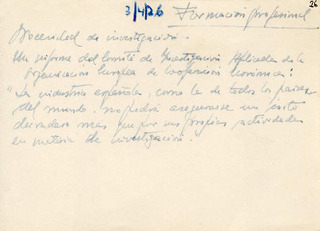 26
3/4/26 Formación profesional
Necesidad de investigación.
Un informe del Comité de Investigación Aplicada de la
Organización Europea de Cooperación Económica:
"La industria española, como la de todos los países
del mundo, no podrá asegurarse un éxito
duradero mas que por sus propias actividades
en materia de investigación."